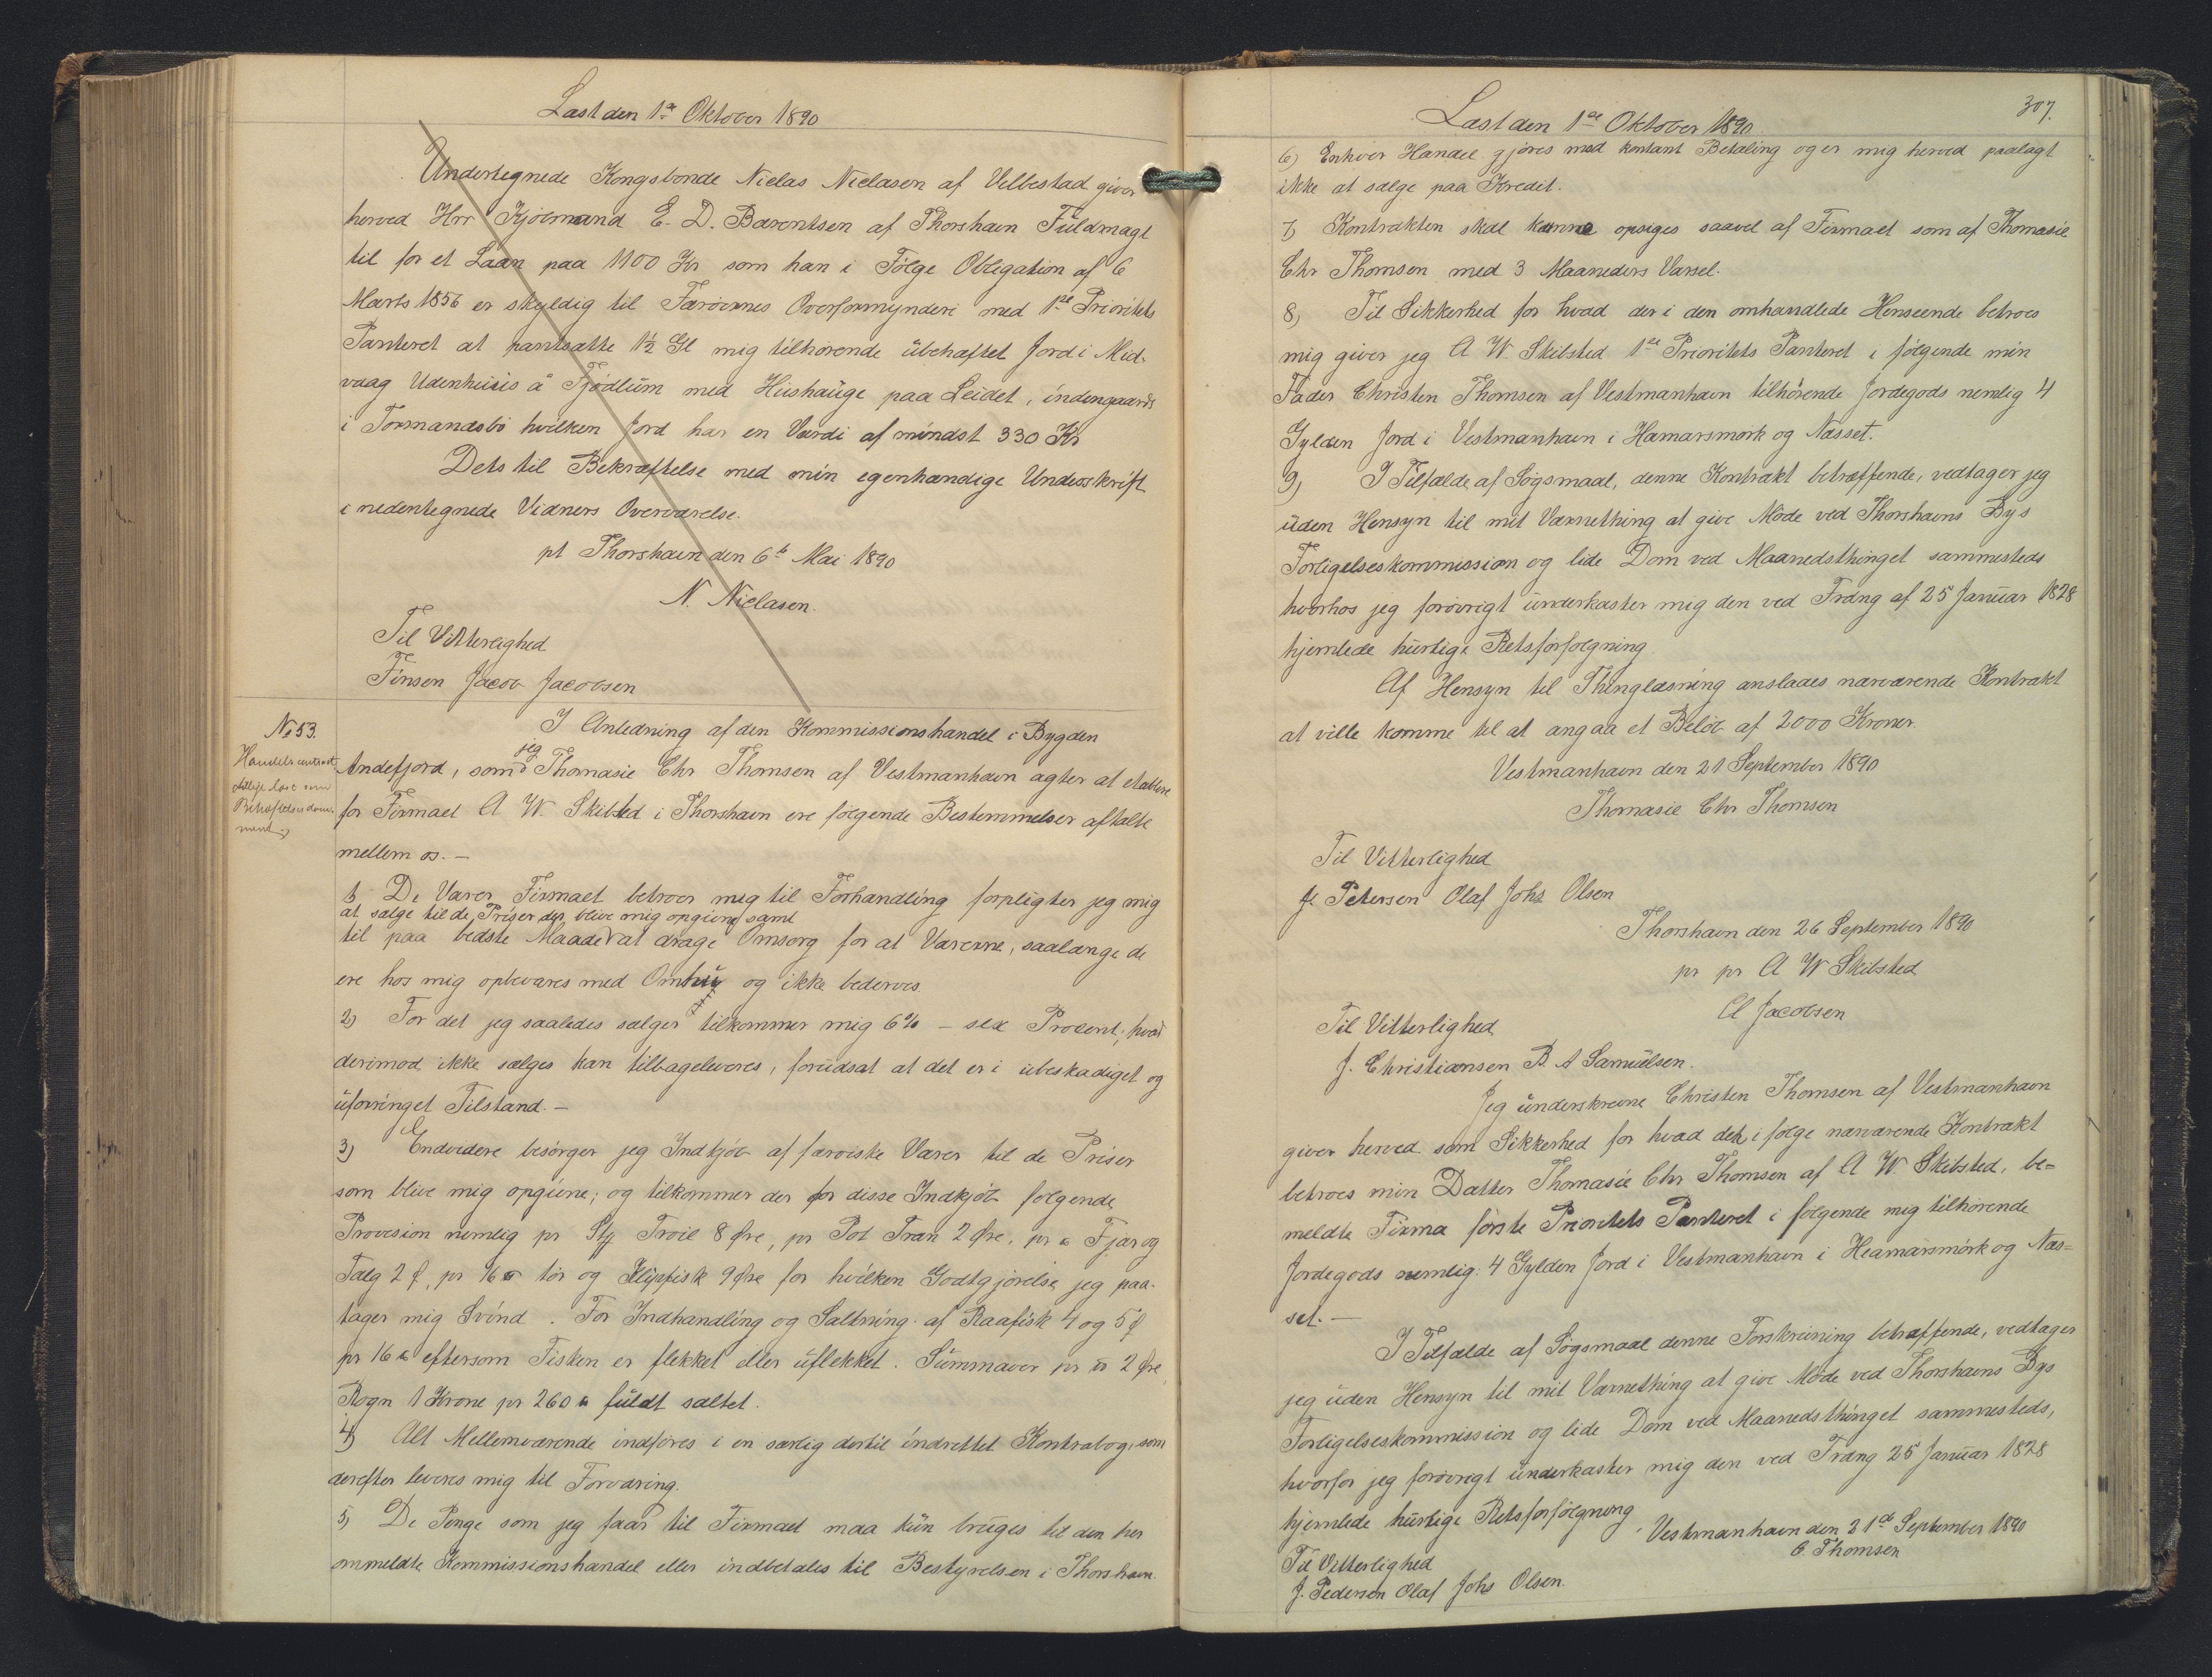 Læst den 1ste Oktober 1890
Undertegnede Kongsbonde Niclas Niclasen af Velbestad giver
herved Hrr Kjøbmand E. D. Bærentsen af Thorshavn Fuldmagt
til for et Laan paa 1100 Kr som han i Følge Obligation af 6
Marts 1856 er skyldig til Færøernes Overformynderi med 1ste Prioritets
Panteret at pantsætte 1½ Gl mig tilhørende ubehæftet Jord i Mid-
vaag Udenhuiis å Fjødlum med Hushauge paa Leidet, indengaards
i Tormandsbø hvilken Jord har en Værdi af mindst 330 Kr
Dets til Bekræftelse med min egenhændige Underskrift
i nedentegnede Vidners Overværelse.
pt Thorshavn den 6te Mai 1890
N. Niclasen.
Til Vitterlighed
Finsen Jacob Jacobsen
No 53.
Handelscontract
tillige læst som
Behæftelsesdocu-
ment
I Anledning af den Kommissionshandel i Bygden
Andefjord, som jeg Thomasie Chr Thomsen af Vestmanhavn agter at etablere
for Firmaet A W. Skibsted i Thorshavn ere følgende Bestemmelser aftalte
mellem os. —
1, De Varer Firmaet betroer mig til Forhandling forpligter jeg mig
at sælge til de Priser der blive mig opgivne samt
til paa bedste Maade at drage Omsorg for at Varerne, saalænge de
ere hos mig opbevares med Omhu og ikke bederves.
2) For det jeg saaledes sælger tilkommer mig 6% — sex Procent; hvad
derimod ikke sælges kan tilbageleveres, forudsat at det er i ubeskadiget og
uforringet Tilstand. —
3) Endvidere besørger jeg Indkjøb af færøiske Varer til de Priser
som blive mig opgivne; og tilkommer der for disse Indkjøb følgende
Provision nemlig pr Stk Trøie 8 Øre, pr Pot Tran 2 Øre, pr ℔ Fjær og
Talg 2 Ø, pr 16 ℔ tør og Klipfisk 9 Øre for hvilken Godtgjørelse jeg paa-
tager mig Svind. For Indhandling og Saltning af Raafisk 4 og 5 Ø
pr 16 ℔ eftersom Fisken er flekket eller uflekket. Summaver pr ℔ 2 Øre
Rogn 1 Krone pr 260 ℔ fuldt saltet.
4) Alt Mellemværende indføres i en særlig dertil indrettet Kontrabog, som
derefter leveres mig til Forvaring.
5) De Penge som jeg faar til Firmaet maa kun bruges til den her
ommeldte Kommissionshandel eller indbetales til Bestyrelsen i Thorshavn.
307.
Læst den 1ste Oktober 1890
6) Enhver Handel gjøres mod kontant Betaling og er mig herved paalagt
ikke at sælge paa Kredit.
7) Kontrakten skal kunne opsiges saavel af Firmaet som af Thomasie
Chr Thomsen med 3 Maaneders Varsel.
8) Til Sikkerhed for hvad der i den omhandlede Henseende betroes
mig giver jeg A W. Skibsted 1ste Prioritets Panteret i følgende min
Fader Christen Thomsen af Vestmanhavn tilhørende Jordegods nemlig 4
Gylden Jord i Vestmanhavn i Hamarsmørk og Næsset.
9) I Tilfælde af Søgsmaal, denne Kontrakt betræffende, vedtager jeg
uden Hensyn til mit Værnething at give Møde ved Thorshavns Bys
Forligelseskommission og lide Dom ved Maanedsthinget sammesteds
hvorhos jeg forøvrigt underkaster mig den ved Frdng af 25 Januar 1828
hjemlede hurtige Retsforfølgning
Af Hensyn til Thinglæsning anslaaes nærværende Kontrakt
at ville komme til at angaa et Beløb af 2000 Kroner.
Vestmanhavn den 21 September 1890
Thomasie Chr Thomsen
Til Vitterlighed
J. Petersen Olaf Johs Olsen
Thorshavn den 26 September 1890
pr pr A W Skibsted
A Jacobsen
Til Vitterlighed
J. Christiansen B A Samuelsen.
Jeg underskrevne Christen Thomsen af Vestmanhavn
giver herved som Sikkerhed for hvad der i følge nærværende Kontrakt
betroes min Datter Thomasie Chr Thomsen af A W Skibsted, be=
meldte Firma første Prioritets Panteret i følgende mig tilhørende
Jordegods nemlig: 4 Gylden Jord i Vestmanhavn i Heamarsmørk og Næs=
set. —
I Tilfælde af Søgsmaal denne Forskrivning betræffende, vedtager
jeg uden Hensyn til mit Værnething at give Møde ved Thorshavns Bys
Forligelseskommission og lide Dom ved Maanedsthinget sammesteds,
hvorfor jeg forøvrigt underkaster mig den ved Frdng 25 Januar 1828
hjemlede hurtige Retsforfølgning.
Vestmanhavn den 21de September 1890
C. Thomsen
Til Vitterlighed
J. Pedersen Olaf Johs Olsen.